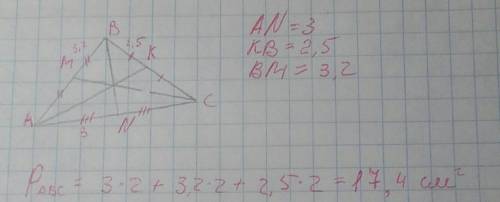 B
3,2
2,5
M
K
A
3
N
C
AN = 3
KB = 2,5
BM = 3,2
P_ABC = 3·2 + 3,2·2 + 2,5·2 = 17,4 см²